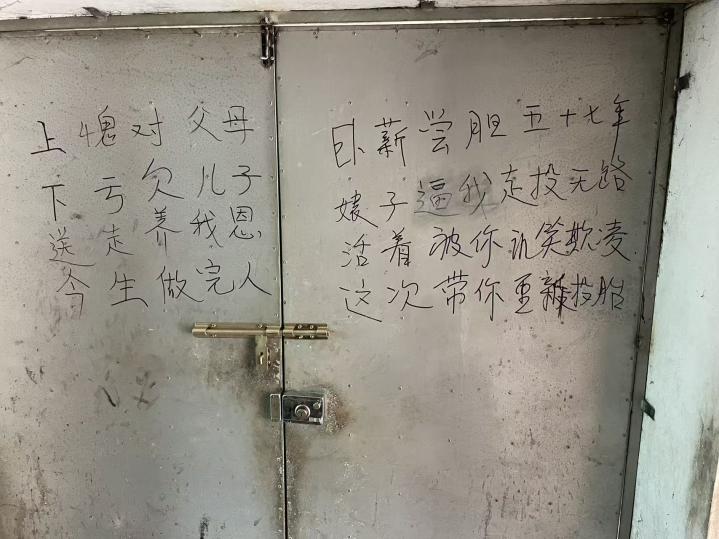 上愧对父母
下亏欠儿子
送走养我恩
今生做完人
卧薪尝胆五十七年
嫂子逼我走投无路
活着被你讥笑欺凌
这次带你重新投胎